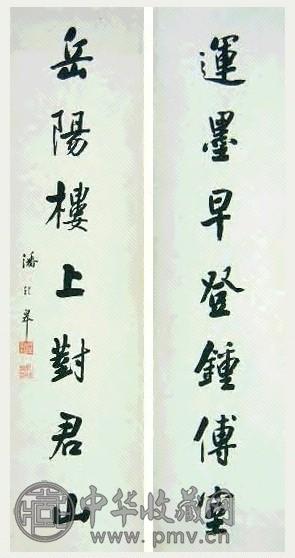 運墨早登鍾傅室
岳陽樓上對君山
潘齡皋
中华收藏网
www.pmv.cn